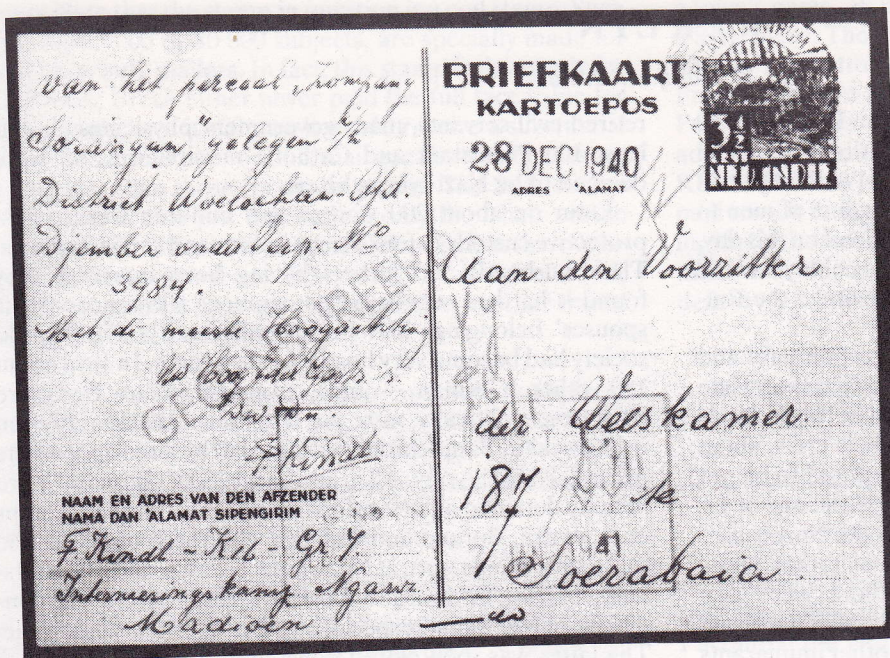 van het perceel „Kompang
Sorangan" gelegen i/h
District Woeloehan Afd
Djember onder Verp. Nº
3984.
Met de meeste Hoogachting
GECENSUREERD
F Kindt
NAAM EN ADRES VAN DEN AFZENDER
NAMA DAN 'ALAMAT SIPENGIRIM
F. Kindt - K16 - Gr 7.
Interneerings kamp Ngawi
Madioen
BRIEFKAART
KARTOEPOS
28 DEC 1940
ADRES 'ALAMAT
3½
CENT
NED. INDIE
Aan den Voorzitter
der Weeskamer
187 te
JAN 1941
Soerabaia